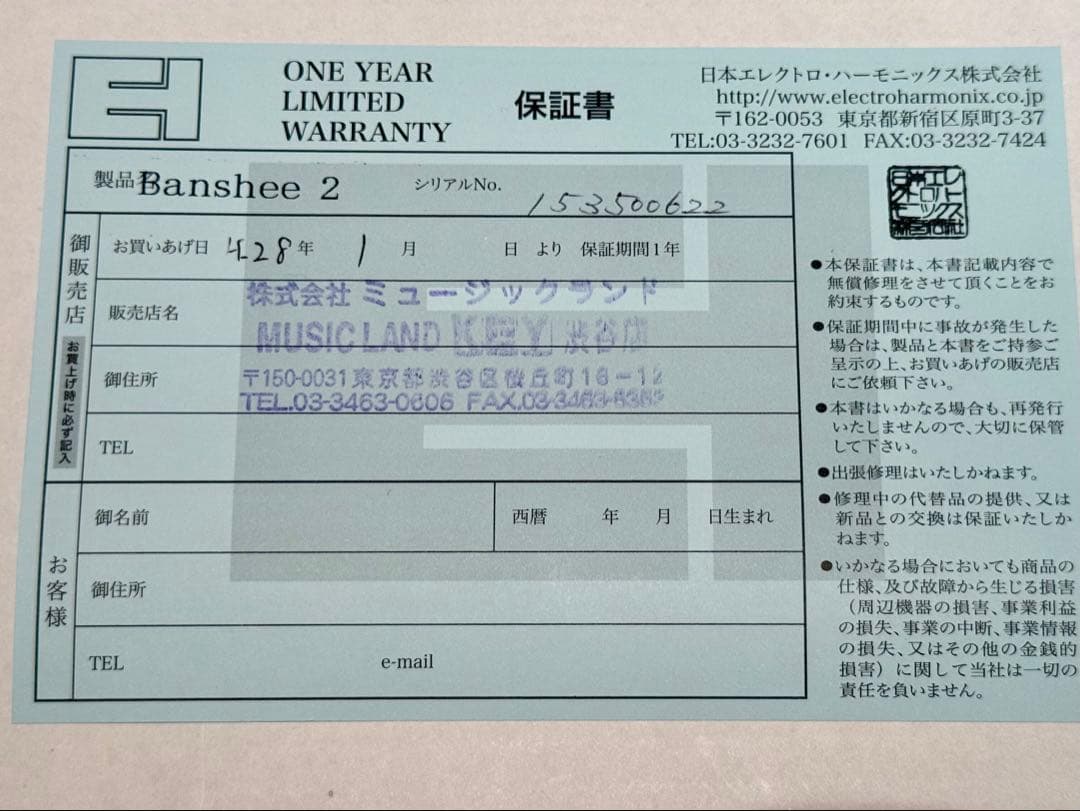 EH
ONE YEAR
LIMITED
WARRANTY
保証書
日本エレクトロ・ハーモニックス株式会社
http://www.electroharmonix.co.jp
〒162-0053 東京都新宿区原町3-37
TEL:03-3232-7601 FAX:03-3232-7424
製品名 Banshee 2 シリアルNo. 153500622
御販売店
お買上げ時に必ず記入
お買いあげ日 428年 1月 日 より 保証期間1年
販売店名
株式会社 ミュージックランド
MUSIC LAND KEY 渋谷店
御住所
〒150-0031 東京都渋谷区桜丘町16-12
TEL.03-3463-0606 FAX.03-3463-
TEL
お客様
御名前 西暦 年 月 日生まれ
御住所
TEL e-mail
日本エレクトロハーモニックス株式会社
●本保証書は、本書記載内容で
無償修理をさせて頂くことをお
約束するものです。
●保証期間中に事故が発生した
場合は、製品と本書をご持参ご
呈示の上、お買いあげの販売店
にご依頼下さい。
●本書はいかなる場合も、再発行
いたしませんので、大切に保管
して下さい。
●出張修理はいたしかねます。
●修理中の代替品の提供、又は
新品との交換は保証いたしか
ねます。
●いかなる場合においても商品の
仕様、及び故障から生じる損害
（周辺機器の損害、事業利益
の損失、事業の中断、事業情報
の損失、又はその他の金銭的
損害）に関して当社は一切の
責任を負いません。